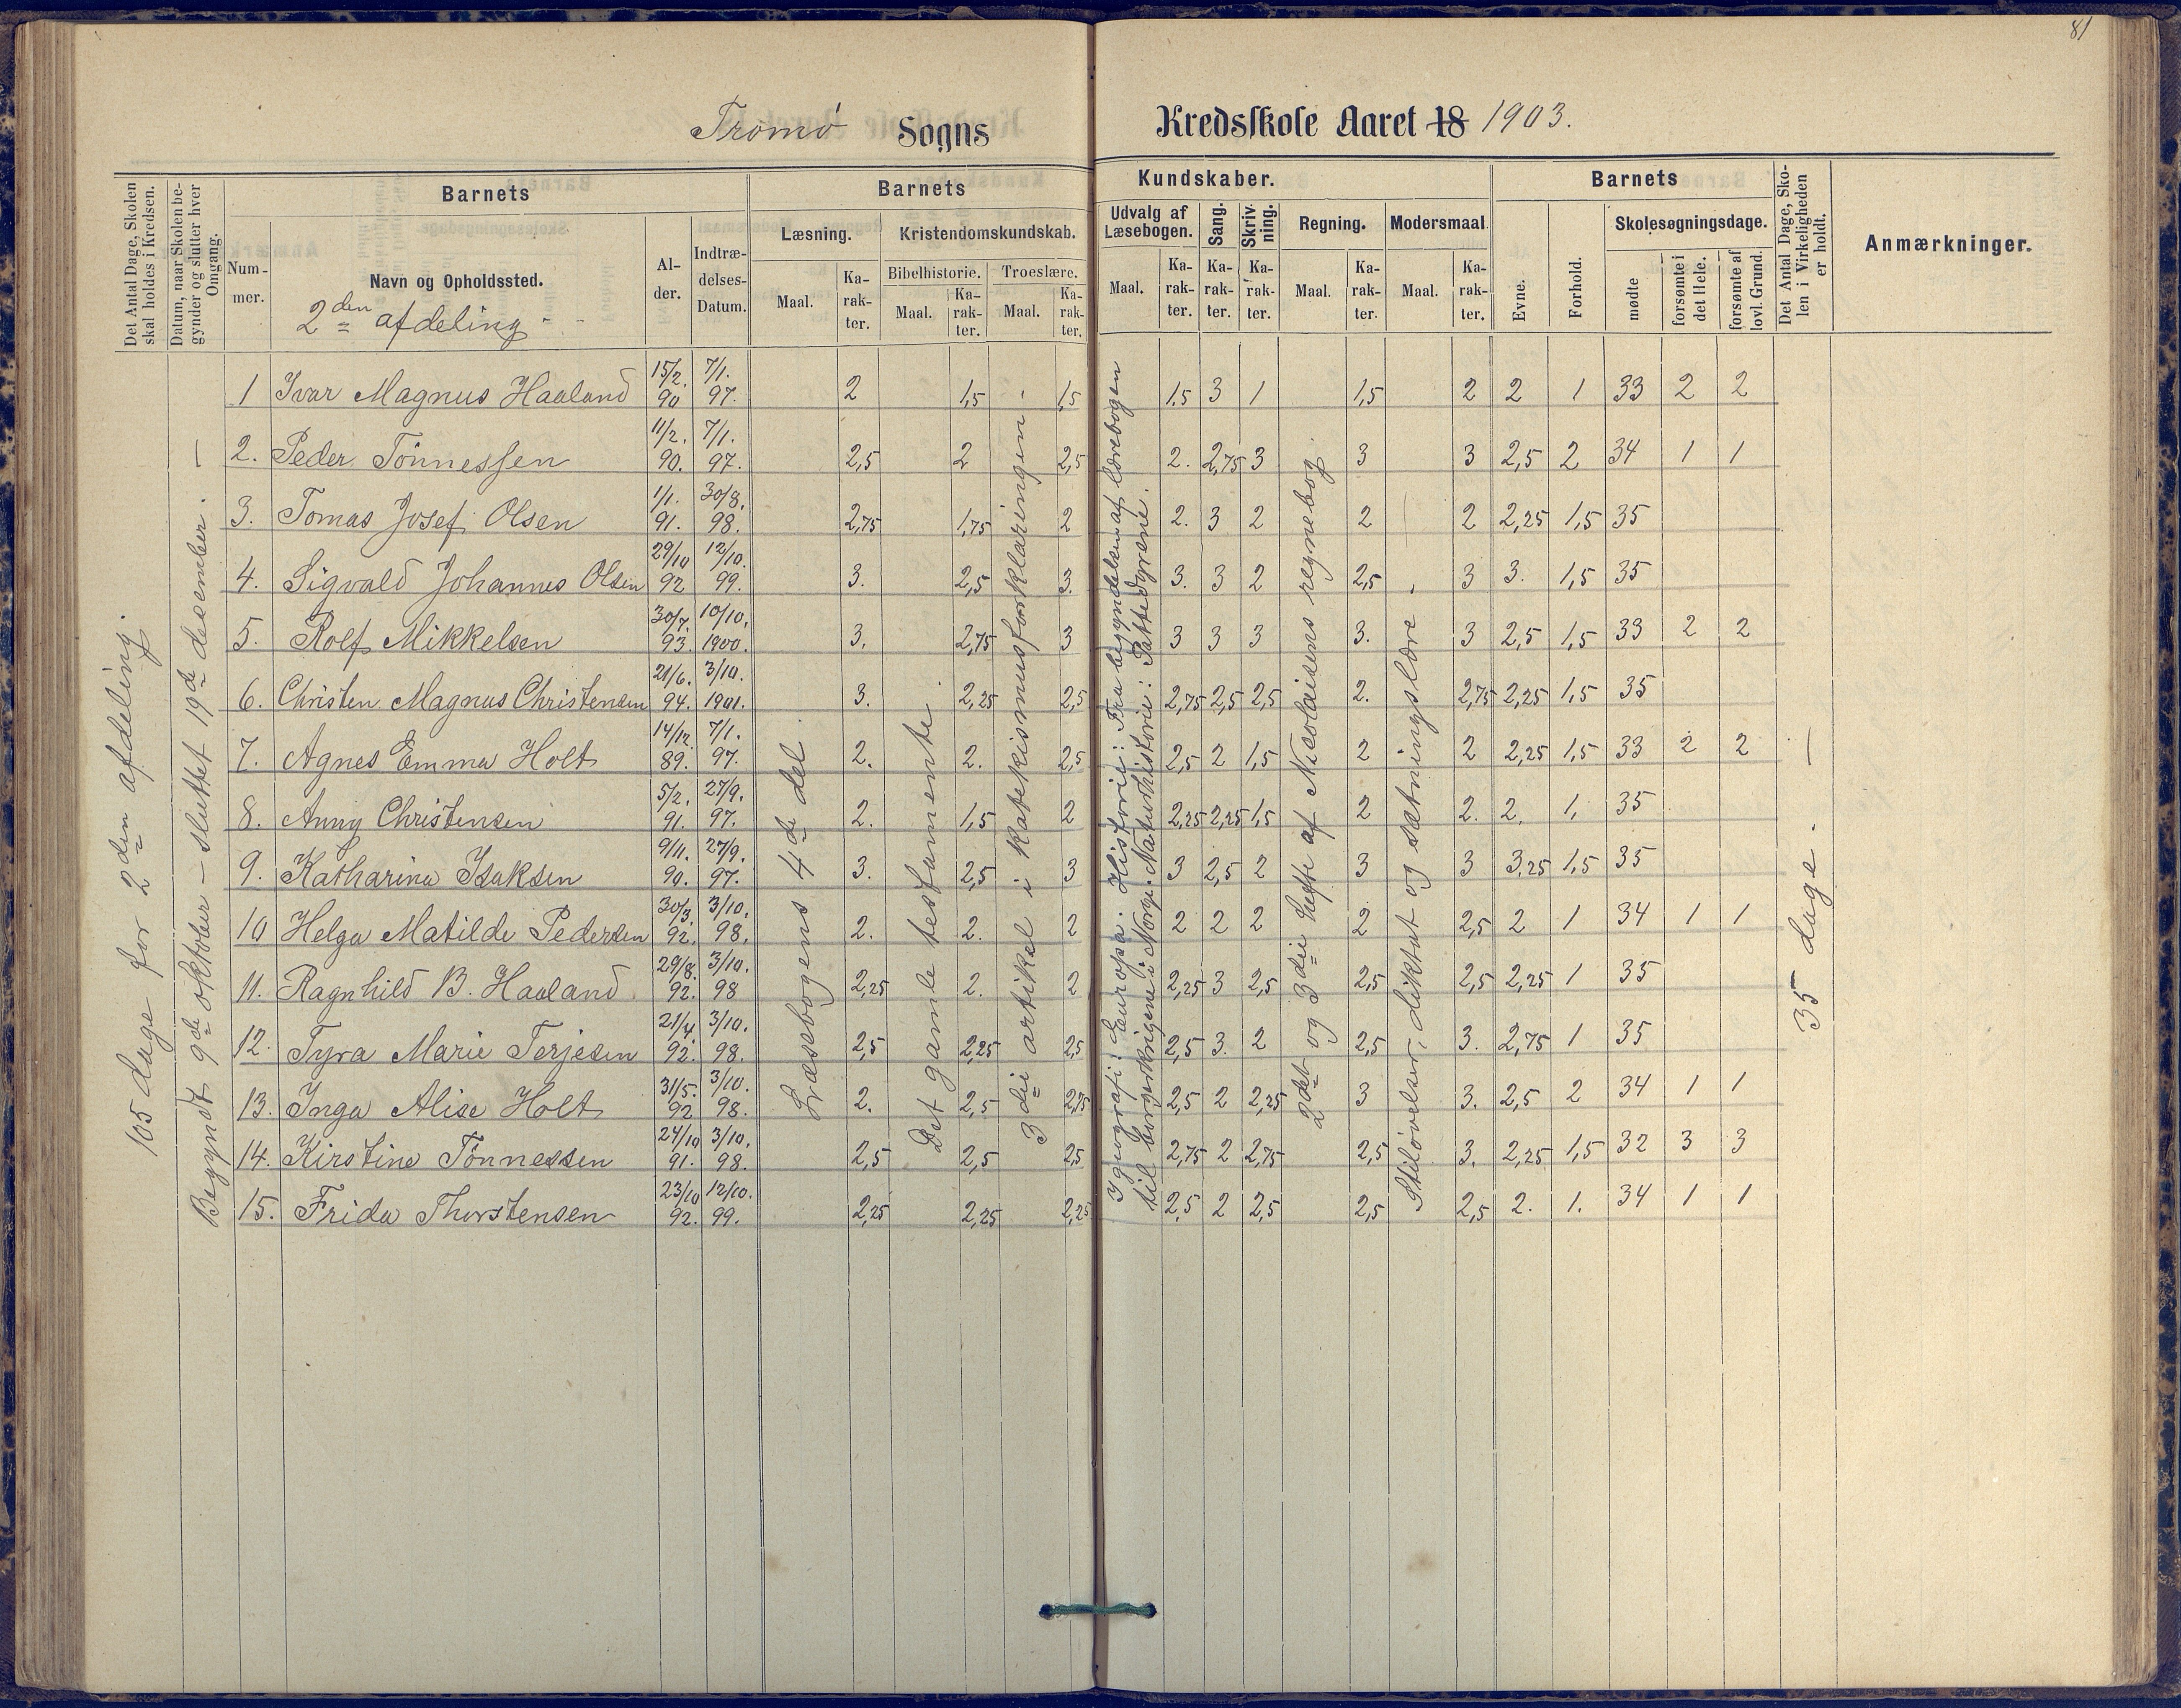 81
Tromø Sogns Kredsskole Aaret 18 1903.
Det Antal Dage, Skolen skal holdes i Kredsen.
Datum, naar Skolen begynder og slutter hver Omgang.
Nummer.
Barnets
Navn og Opholdssted.
2den afdeling
Alder.
Indtrædelses-Datum.
Barnets Kundskaber.
Læsning.
Maal. Karakter.
Kristendomskundskab.
Bibelhistorie. Maal. Karakter.
Troeslære. Maal. Karakter.
Udvalg af Læsebogen. Maal. Karakter.
Sang. Karakter.
Skrivning. Karakter.
Regning. Maal. Karakter.
Modersmaal. Maal. Karakter.
Barnets
Evne. Forhold.
Skolesøgningsdage.
mødte forsømte i det Hele. forsømte af lovl. Grund.
Det Antal Dage, Skolen i Virkeligheden er holdt.
Anmærkninger.
105 dage for 2den afdeling.
Begyndt 9de oktober – sluttet 19de december. –
Læsebogens 4de del.
Det gamle testamente.
3die artikel i katekismusforklaringen.
I geografi: Europa. Historie: Fra begyndelsen af lærebogen
til borgerkrigene i Norge. Naturhistorie: Pattedyrene.
2det og 3die hefte af Nicolaisens regnebog.
Stiløvelser, diktat og sætningslære.
35 dage. –
1 Ivar Magnus Haaland 15/2. 90 7/1. 97. 2 1,5 1,5 1.5 3 1 1,5 2 2 1 33 2 2
2. Peder Tönnessen 11/2. 90. 7/1. 97. 2,5 2 2,5 2. 2,75 3 3 3 2,5 2 34 1 1
3. Tomas Josef Olsen 1/1. 91. 30/8. 98. 2,75 1,75 2 2. 3 2 2 2 2,25 1,5 35
4. Sigvald Johannes Olsen 29/10 92 12/10. 99. 3. 2,5 3. 3. 3 2 2,5 3 3. 1,5 35
5. Rolf Mikkelsen 30/7. 93. 10/10. 1900. 3. 2,75 3 3 3 3 3. 3 2,5 1,5 33 2 2
6. Christen Magnus Christensen 21/6. 94. 3/10. 1901. 3. 2,25 2,5 2,75 2,5 2,5 2. 2,75 2,25 1,5 35
7. Agnes Emma Holt 14/12. 89. 7/1. 97. 2. 2. 2,5 2,5 2 1,5 2 2 2,25 1,5 33 2 2
8. Anny Christensen 5/2. 91. 27/9. 97. 2. 1,5 2 2,25 2,25 1,5 2 2. 2. 1. 35
9. Katharina Isaksen 9/11. 90. 27/9. 97. 3. 2,5 3 3 2,5 2 3 3 3.25 1,5 35
10 Helga Matilde Pedersen 30/3. 92. 3/10. 98. 2. 2. 2 2 2 2 2 2,5 2 1 34 1 1
11. Ragnhild B. Haaland 29/8. 92. 3/10. 98 2,25 2. 2 2,25 3 2,5 2,5 2,5 2,25 1 35
12. Tyra Marie Terjesen 21/4. 92. 3/10. 98. 2,5 2,25 2,5 2,5 3. 2 2,5 3. 2,75 1 35
13. Inga Alise Holt 31/5. 92 3/10. 98. 2. 2,5 2,75 2,5 2 2,25 3 3. 2,5 2 34 1 1
14. Kirstine Tönnessen 24/10 91. 3/10. 98. 2,5 2,5 2,5 2,75 2 2,75 2,5 3. 2,25 1,5 32 3 3
15. Frida Thorstensen 23/10 92. 12/10. 99. 2,25 2,25 2,25 2,5 2 2,5 2,5 2,5 2. 1. 34 1 1